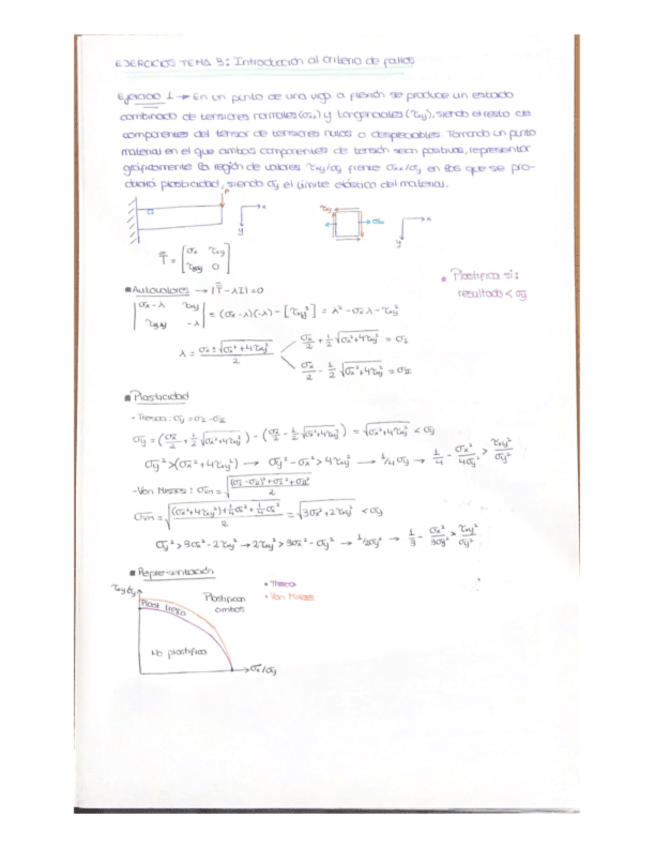 EJERCICIOS TEMA 3: Introducción al criterio de fallos
Ejercicio 1 → En un punto de una viga a flexión se produce un estado
combinado de tensiones normales (σx) y tangenciales (τxy), siendo el resto de
componentes del tensor de tensiones nulas o despreciables. Tomando un punto
material en el que ambas componentes de tensión sean positivas, representar
gráficamente la región de valores τxy/σy frente σxx/σy en los que se pro-
ducirá plasticidad, siendo σy el límite elástico del material.
P
x
y
τxy
σx
x
y
T = [σx τxy
τxy 0]
Autovalores → |T - λI| = 0
Plastifica si:
resultado < σy
|σx-λ τxy
τxy -λ| = (σx-λ)(-λ) - [τxy²] = λ² - σxλ - τxy²
λ = (σx ± √(σx² + 4τxy²))/2
σx/2 + 1/2 √(σx² + 4τxy²) = σI
σx/2 - 1/2 √(σx² + 4τxy²) = σII
Plasticidad
- Tresca: σy = σI - σII
σy = (σx/2 + 1/2 √(σx² + 4τxy²)) - (σx/2 - 1/2 √(σx² + 4τxy²)) = √(σx² + 4τxy²) < σy
σy² > (σx² + 4τxy²) → σy² - σx² > 4τxy² → 1/4σy → 1/4 - σx²/4σy² > τxy²/σy²
- Von Misses: σvm = √(((σI - σII)² + σI² + σII²)/2)
σvm = √(((σx² + 4τxy²) + 1/4σx² + 1/4σx²)/2) = √(3σx² + 2τxy²) < σy
σy² > 3σx² - 2τxy² → 2τxy² > 3σx² - σy² → 1/2σy² → 1/3 - σx²/3σy² > τxy²/σy²
Representación
τxy/σy
Plast tresca
Plastifican
ambos
• Tresca
• Von Misses
No plastifica
σx/σy